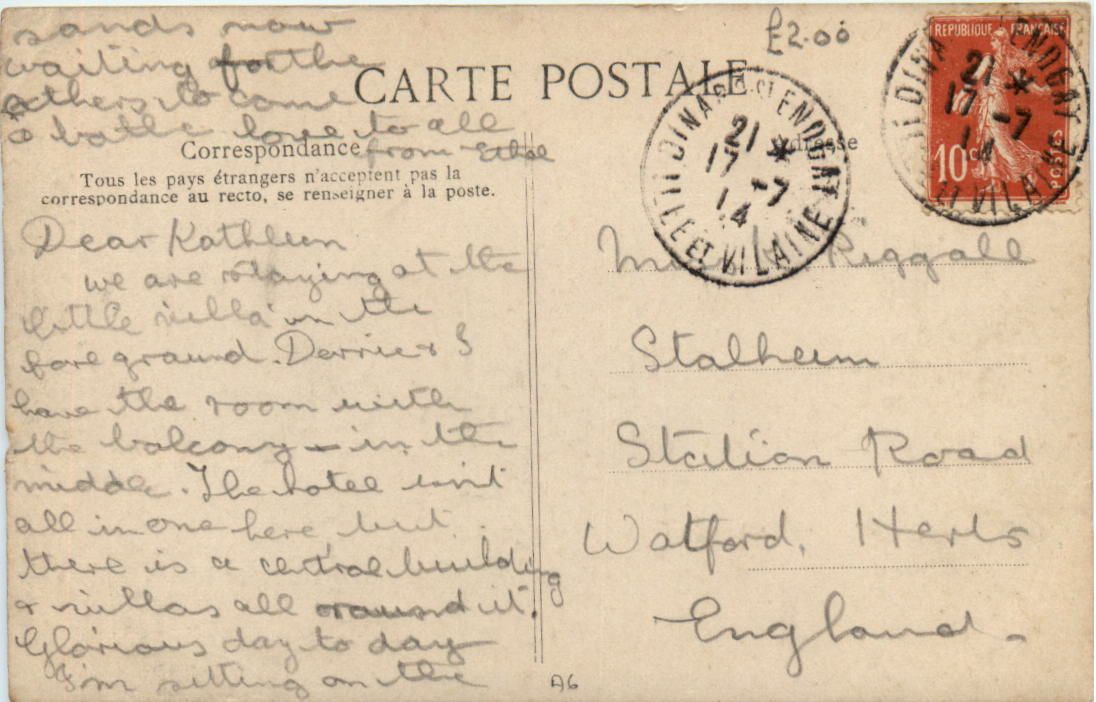 £2.00
CARTE POSTALE
Correspondance
Adresse
Tous les pays étrangers n'acceptent pas la
correspondance au recto, se renseigner à la poste.
Dear Kathleen
we are staying at the
little villa in the
fore ground. Derrie & I
have the room with
the balcony - in the
middle. The hotel isn't
all in one here but
there is a central building
& villas all around it.
Glorious day to day
I'm sitting on the
sands now
waiting for the
others to come
to bathe love to all
from Ethel
Miss Riggall
Stalheim
Station Road
Watford, Herts
England.
REPUBLIQUE FRANÇAISE
10c
POSTES
DINARD-ST ENOGAT
21 *
17 -7
14
ILLE ET VILAINE
DINARD ENOGAT
21 *
17 -7
14
ILLE ET VILAINE
A6